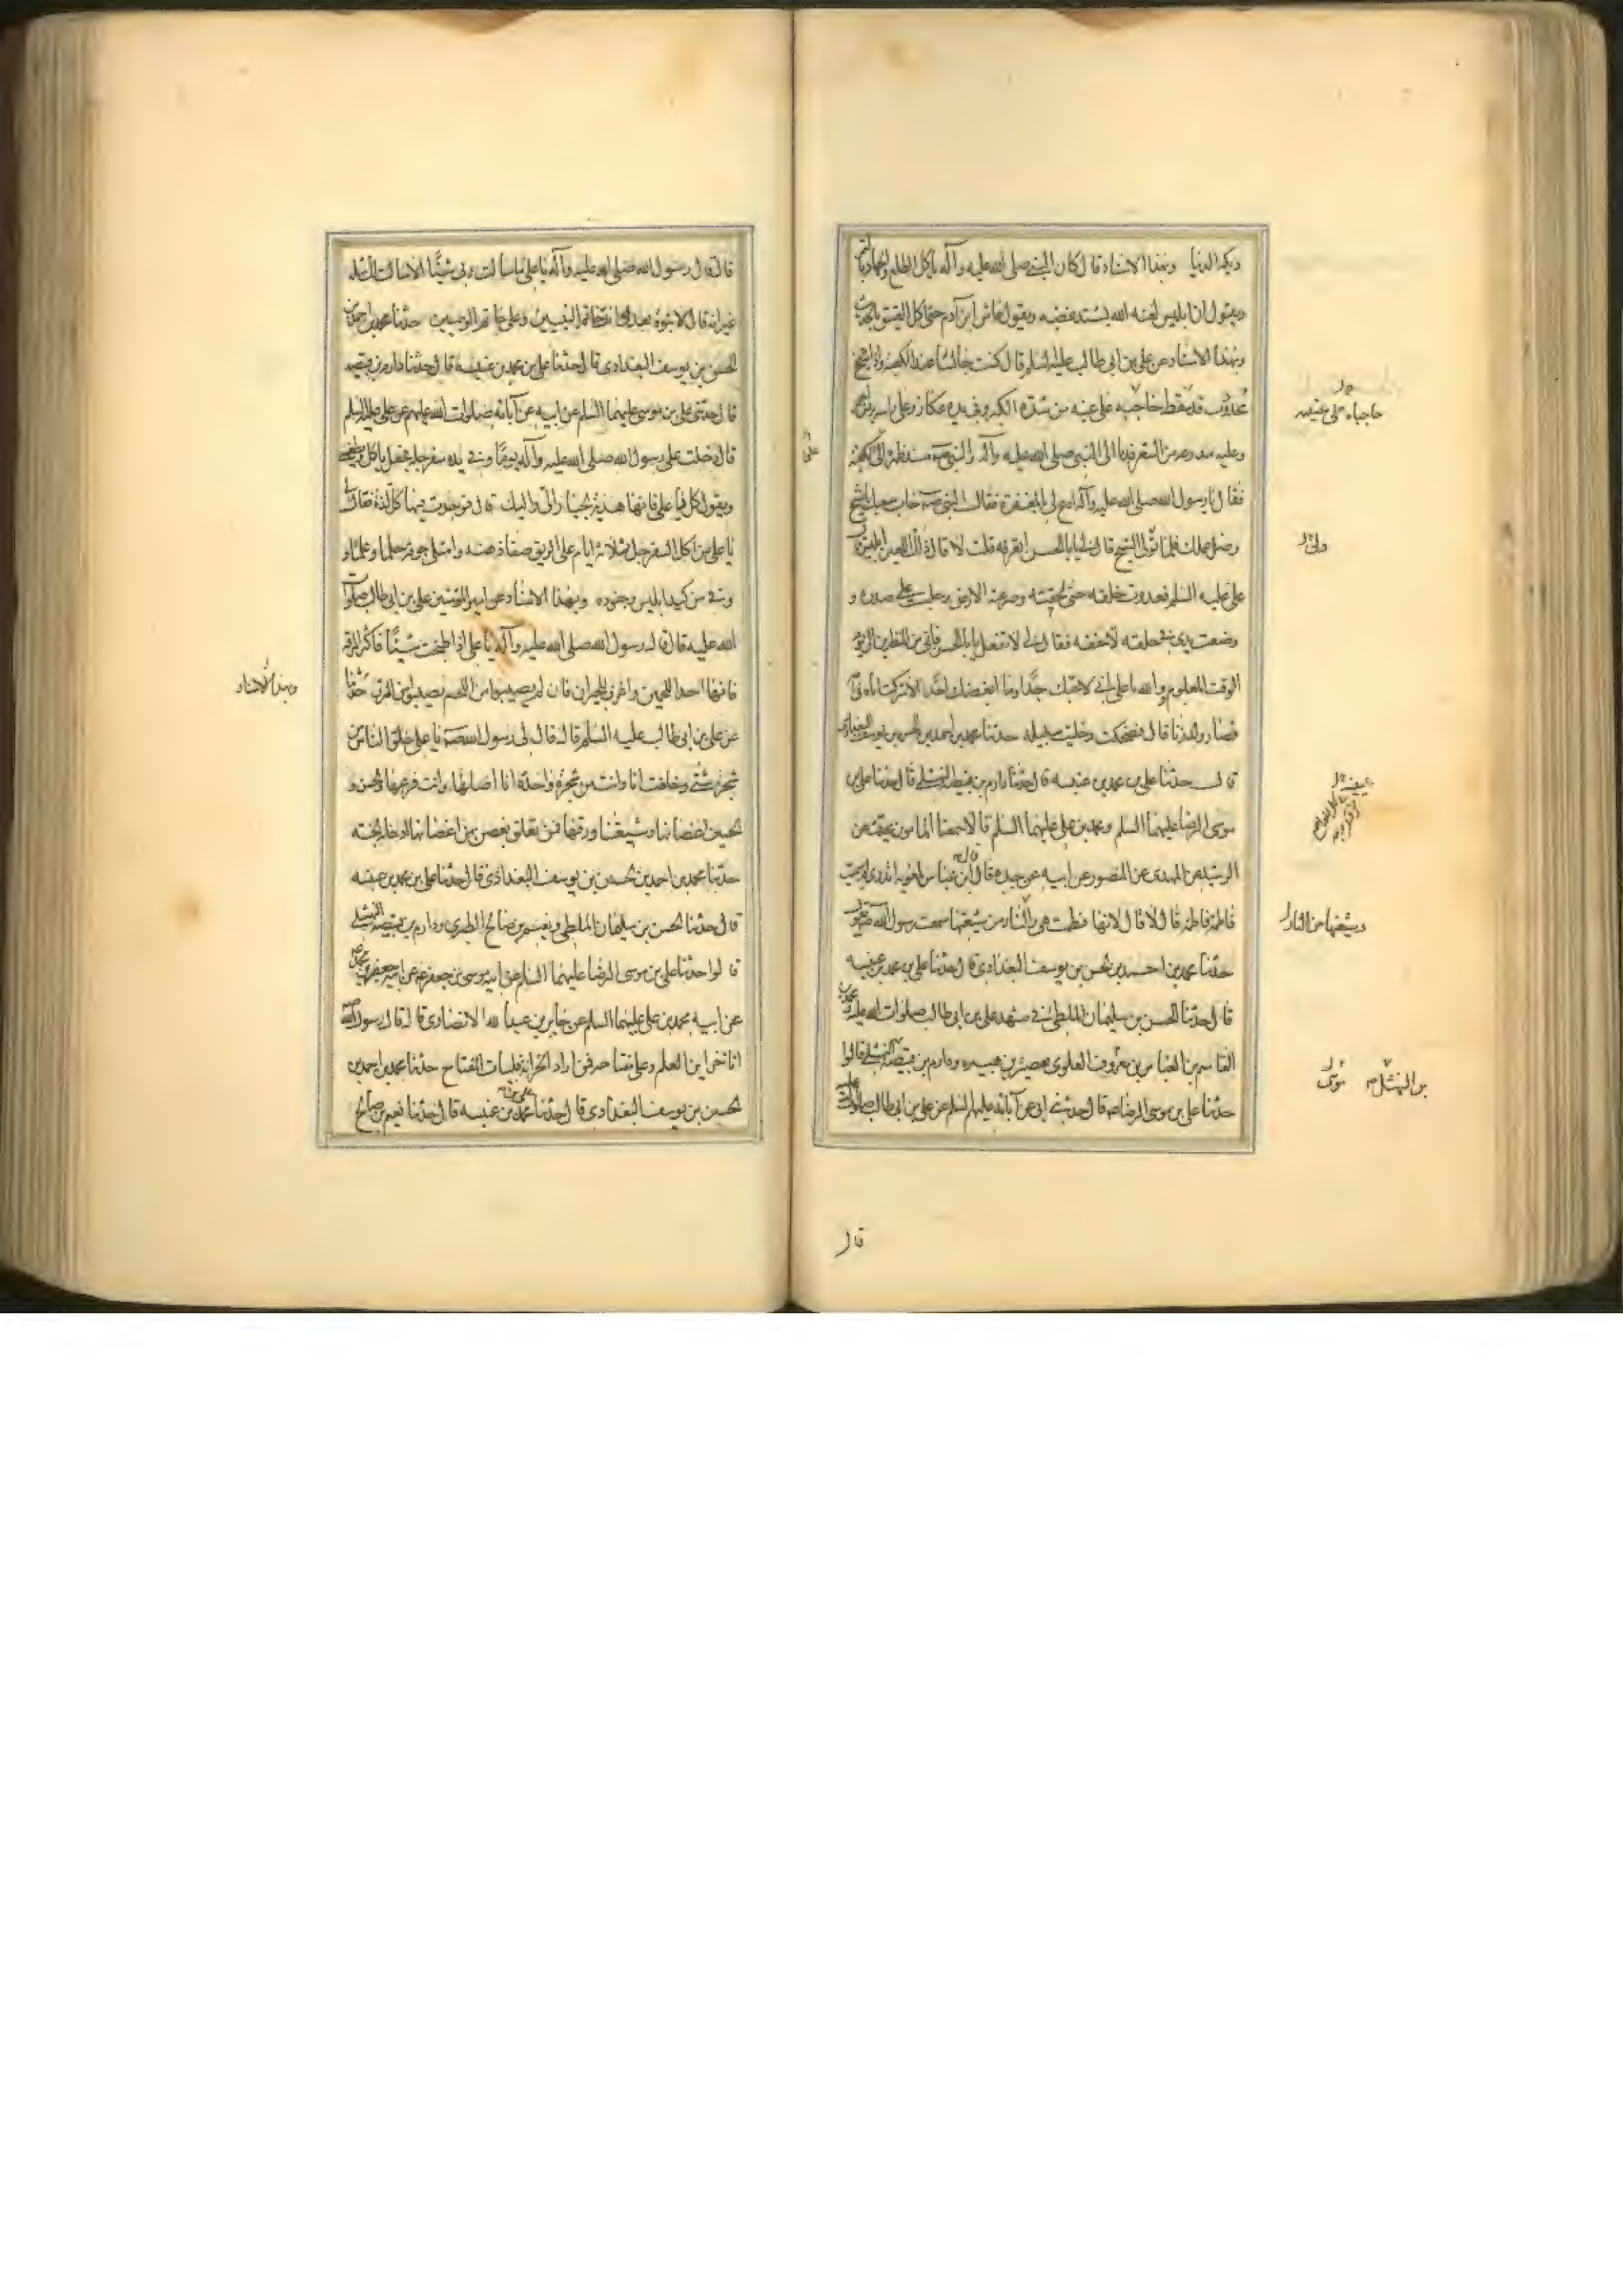 ويكره الدنيا وبهذا الاسناد قال كان النبي صلى الله عليه وآله ياكل الطلع والجمار بالتمر
ويقول ان ابليس لعنه الله يشتد غضبه ويقول عاش ابن آدم حتى اكل العتيق بالحديث
وبهذا الاسناد عن علي بن ابي طالب عليه السلم قال كنت جالسا عند الكعبة واذا شيخ
محدودب قد سقط حاجبه على عينيه من شدة الكبر وفي يده عكاز وعلى راسه برنس
وعليه مدرعة من الشعر فدنا الى النبي صلى الله عليه وآله والنبي مسند ظهره الى الكعبة
فقال يا رسول الله صلى الله عليه وآله ادع لي بالمغفرة فقال النبي خاب سعيك يا شيخ
وضل عملك فلما تولى الشيخ قال لي يا ابا الحسن اتعرفه قلت لا قال ذلك اللعين ابليس قال
علي عليه السلم فعدوت خلفه حتى لحقته وصرعته الى الارض وجلست على صدره و
وضعت يدي في حلقه لاخنقه فقال لي لا تفعل يا ابا الحسن فاني من المنظرين الى يوم
الوقت المعلوم والله يا علي اني لاحبك جدا وما ابغضك احد الا شركت اباه في
فصار ولد زنا قال فضحكت وخليت سبيله حدثنا محمد بن احمد بن الحسن بن يوسف البغدادي
قال حدثنا علي بن محمد بن عنبسه قال حدثنا دارم بن قبيصه النهشلي قال حدثنا علي بن
موسى الرضا عليهما السلم ومحمد بن علي عليهما السلم قالا سمعنا المامون يحدث عن
الرشيد عن المهدى عن المنصور عن ابيه عن جده قال قال ابن عباس لمعويه اتدرى لم سميت
فاطمة فاطمة قال لا قال لانها فطمت هي والنار من شيعتها سمعت رسول الله يقول
حدثنا محمد بن احمد بن الحسن بن يوسف البغدادى قال حدثنا علي بن محمد بن عنبسه
قال حدثنا الحسن بن سليمان الملطي في مشهد علي بن ابي طالب صلوات الله عليه ومحمد بن
القاسم بن العباس بن معروف العلوى بقصر بن هبيره ودارم بن قبيصه النهشلي قالوا
حدثنا علي بن موسى الرضا قال حدثني ابي عن آبائه عليهم السلم عن علي بن ابي طالب صلوات عليه
حاجباه على عينيه
ولى
وشيعتها من النار
قال
قال قال رسول الله صلى الله عليه وآله يا علي ما سالت ربي شيئا الا سالت لك مثله
غير انه قال لا نبوة بعدك انت خاتم النبيين وعلي خاتم الوصيين حدثنا محمد بن احمد بن
الحسن بن يوسف البغدادى قال حدثنا علي بن محمد بن عنبسه قال حدثنا دارم بن قبيصه
قال حدثني علي بن موسى عليهما السلم عن ابيه عن آبائه صلوات الله عليهم عن علي عليه السلم
قال دخلت على رسول الله صلى الله عليه وآله يوما وفي يده سفرجلة فجعل ياكل ويطعمني
ويقول كل يا علي فانها هدية الجبار الى واليك قال فوجدت فيها كل لذة فقال لي
يا علي من اكل السفرجل ثلاثة ايام على الريق صفا ذهنه وامتلى جوفه حلما وعلما و
وقي من كيد ابليس وجنوده وبهذا الاسناد عن امير المؤمنين علي بن ابي طالب صلوات
الله عليه قال قال رسول الله صلى الله عليه وآله يا علي اذا طبخت شيئا فاكثر المرقة
فانها احد اللحمين واغرف للجيران فان لم يصيبوا من اللحم يصيبوا من المرق حدثنا
عن علي بن ابي طالب عليه السلم قال قال لي رسول الله يا علي خلق الناس من
شجر شتى وخلقت انا وانت من شجرة واحدة انا اصلها وانت فرعها والحسن و
الحسين اغصانها وشيعتنا ورقها فمن تعلق بغصن من اغصانها ادخله الجنة
حدثنا محمد بن احمد بن الحسن بن يوسف البغدادى قال حدثنا علي بن محمد بن عنبسه
قال حدثنا الحسن بن سليمان الملطي ونعيم بن صالح الطبرى ودارم بن قبيصه النهشلي
قالوا حدثنا علي بن موسى الرضا عليهما السلم عن ابيه موسى بن جعفر عن ابيه جعفر بن محمد
عن ابيه محمد بن علي عليهما السلم عن جابر بن عبد الله الانصارى قال قال رسول الله
انا خزاين العلم وعلي مفتاحه فمن اراد الخزانة فليات المفتاح حدثنا محمد بن احمد بن
الحسين بن يوسف البغدادى قال حدثنا علي بن محمد بن عنبسه قال حدثنا نعيم بن صالح
وبهذا الاسناد